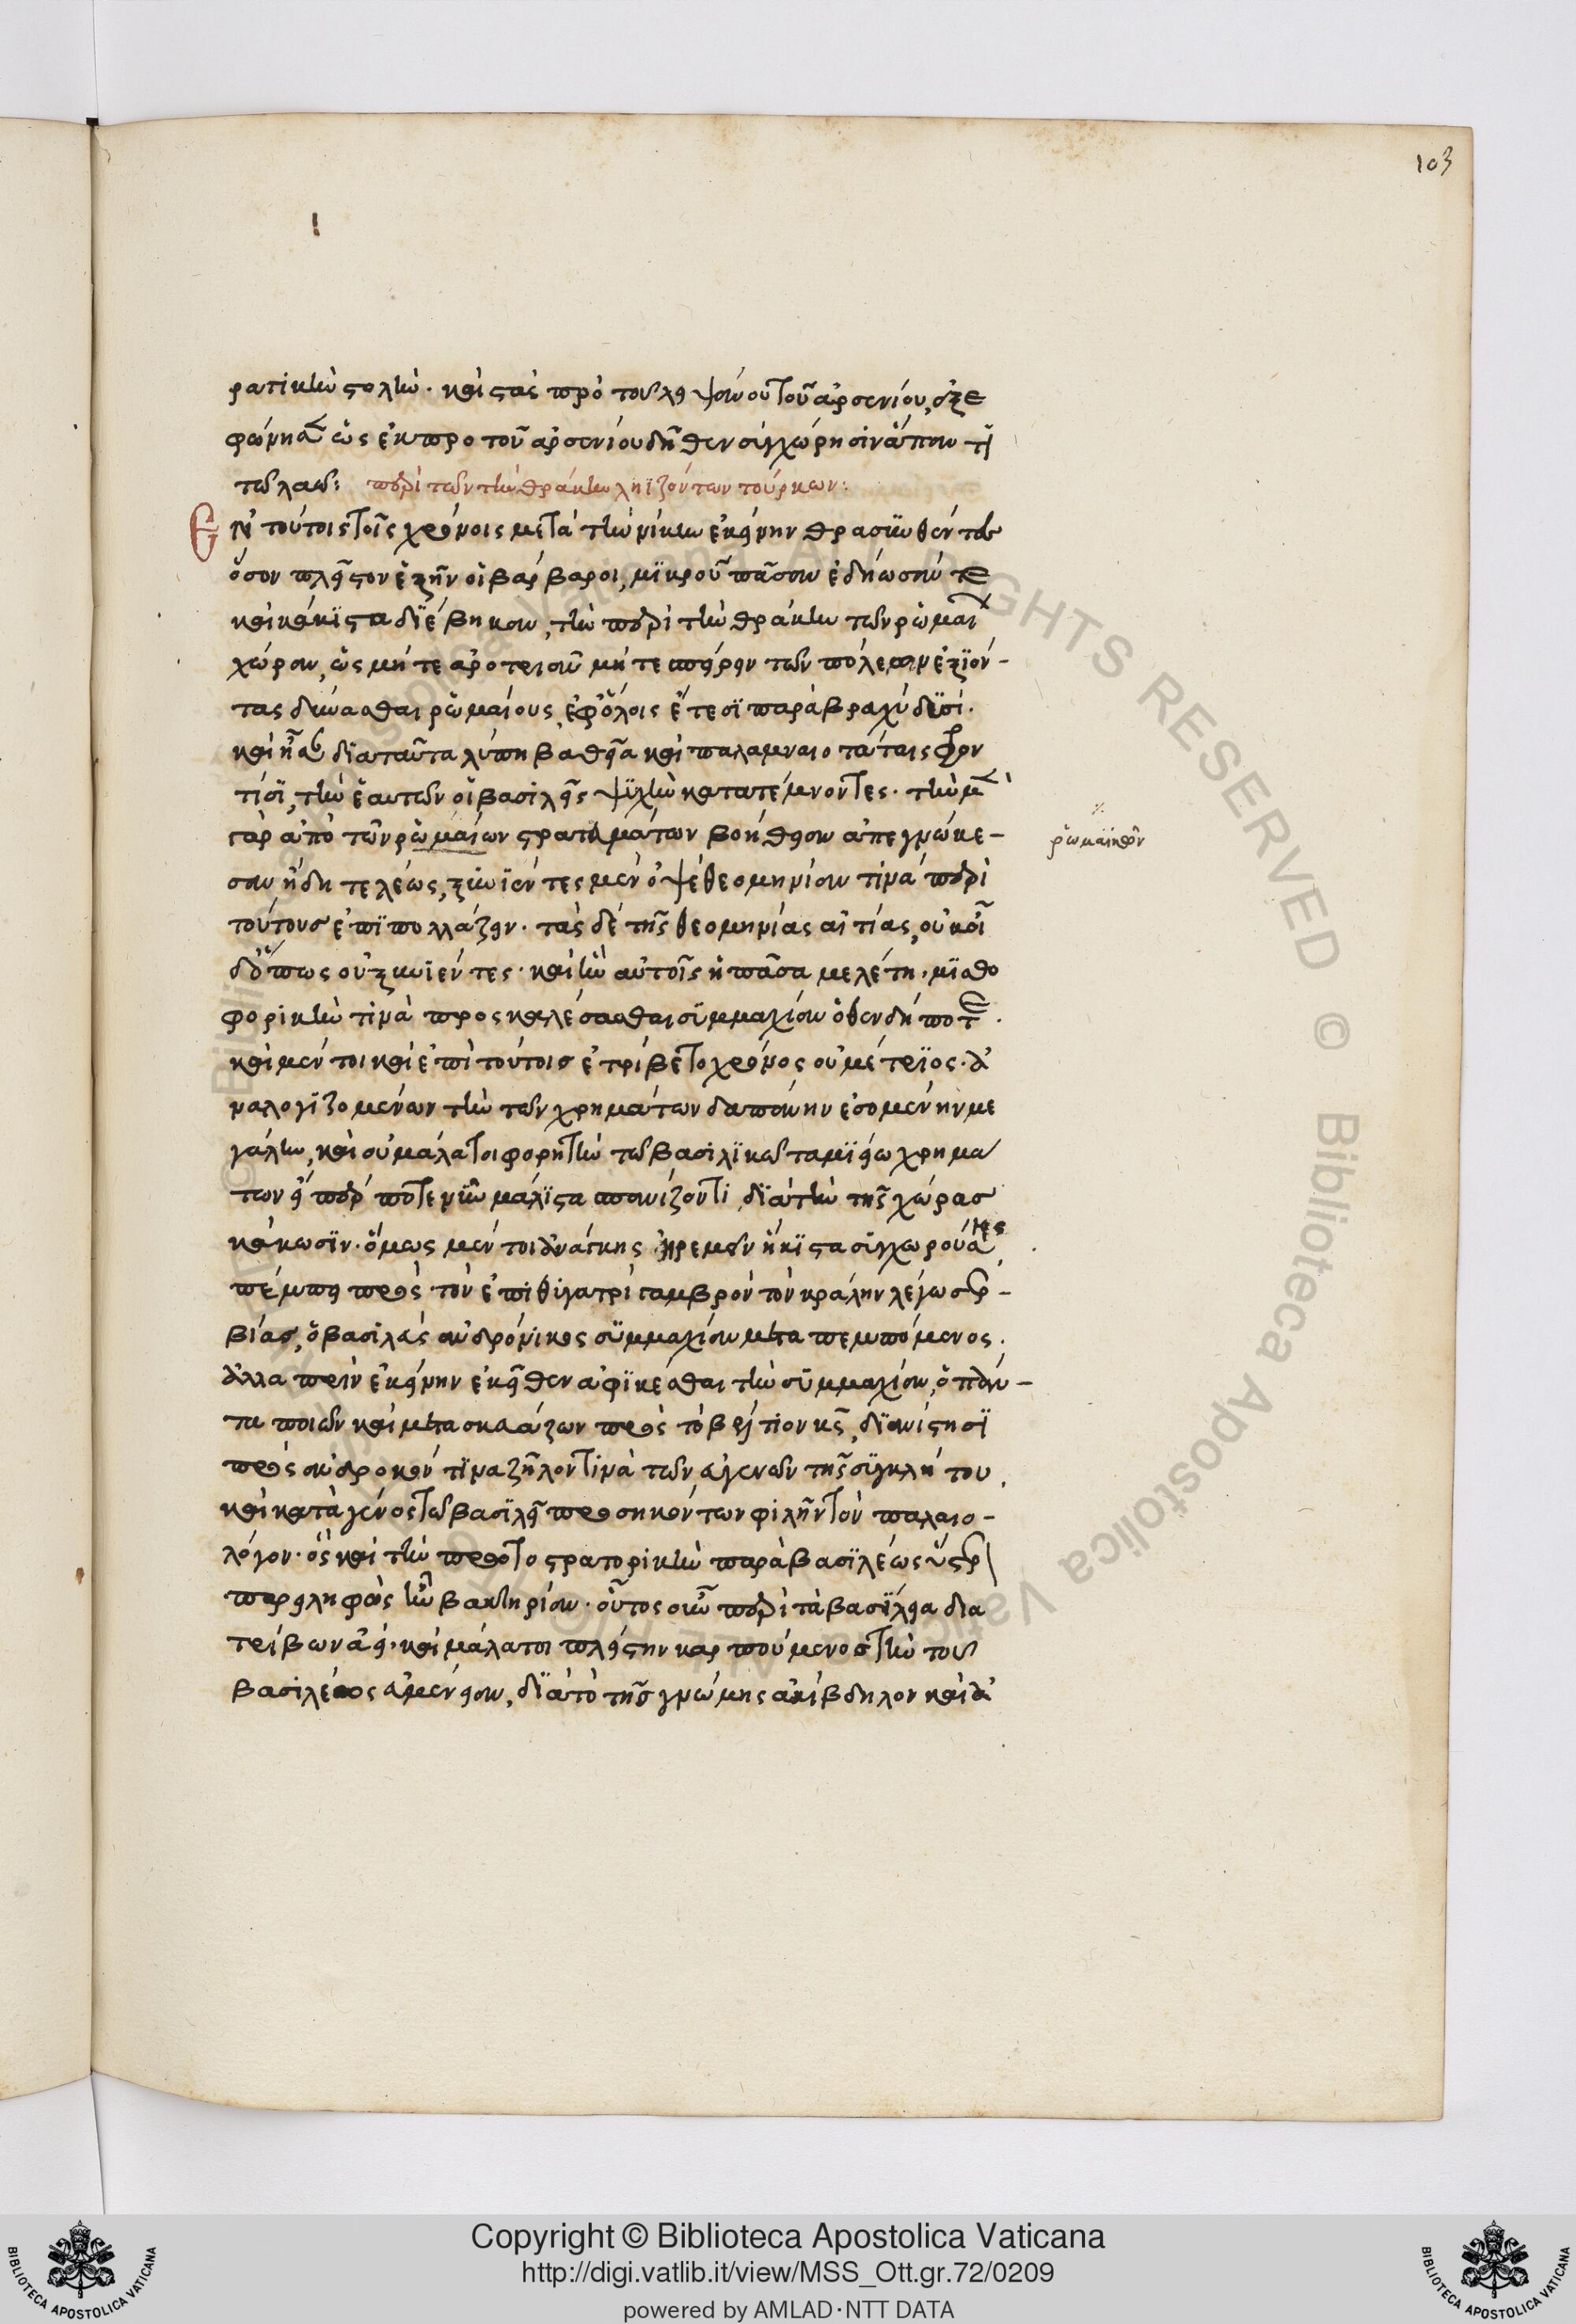 103
ρατικὴν στολὴν· καὶ στὰς πρὸ τοῦ λειψάνου τοῦ ἀρσενίου, ἐξε
φώνησεν ὡς ἐκ προ τοῦ ἀρσενίου δῆθεν συγχώρησιν ἅπαντι
τῷ λαῷ: περὶ τῶν τὴν θράκην ληϊζόντων τούρκων:
Ἐν τούτοις τοῖς χρόνοις μετὰ τὴν νίκην ἐκείνην θρασυνθέντες
ὅσον πλεῖστον ἐξῆν οἱ βάρβαροι, μικροῦ πᾶσαν ἐδῄωσάν τε
καὶ κάκιστα διέθηκαν, τὴν περὶ τὴν θράκην τῶν ῥωμαίων
χώραν, ὡς μήτε ἀροτριᾶν μήτε σπείρειν τῶν πόλεων ἐξιόν-
τας δύνασθαι ῥωμαίους ἐφ᾽ ὅλοις ἔτεσι παρὰ βραχὺ δυσί.
καὶ ἦσαν διαταῦτα λύπῃ βαθείᾳ καὶ παλαμναιοτάταις φρον
τίσι, τὴν ἑαυτῶν οἱ βασιλεῖς ψυχὴν κατατέμνοντες· τὴν μὲν
γὰρ ἀπὸ τῶν ῥωμαίων στρατευμάτων βοήθειαν ἀπεγνώκε-
σαν ἤδη τελέως, ξυνιέντες μὲν ὀψὲ θεομηνίαν τινὰ περὶ
τούτους ἐπιπολλάζειν· τὰς δὲ τῆς θεομηνίας αἰτίας, οὐκ οἶ
δ᾽ ὅπως οὐ ξυνιέντες· καὶ ἦν αὐτοῖς ἡ πᾶσα μελέτη, μισθο
φορικὴν τινὰ προσκαλέσασθαι συμμαχίαν ὅθεν δήποτε.
καὶ μέντοι καὶ ἐπὶ τούτοις ἐτρίβετο χρόνος οὐ μέτριος· ἀ
ναλογιζομένων τὴν τῶν χρημάτων δαπάνην ἐσομένην με
γάλην, καὶ οὐ μάλα τοι φορητὴν τῷ βασιλικῷ ταμιείῳ χρημά
των εἴπερ ποτε νῦν μάλιστα σπανίζοντι, διὰ τὴν τῆς χώρας
κάκωσιν· ὅμως μέντοι ἀνάγκης ἠρεμεῖν ἥκιστα συγχωρούσης
πέμπει πρὸς τὸν ἐπὶ θυγατρὶ γαμβρὸν τὸν κράλην λέγω σερ-
βίας, ὁ βασιλεὺς ἀνδρόνικος συμμαχίαν μεταπεμπόμενος.
ἀλλὰ πρὶν ἐκείνην ἐκεῖθεν ἀφικέσθαι τὴν συμμαχίαν, ὁ πάν-
τα ποιῶν καὶ μετασκευάζων πρὸς τὸ βέλτιον κς, διανίστησι
πρὸς ἀνδρικόν τινα ζῆλον τινὰ τῶν εὐγενῶν τῆς συγκλήτου,
καὶ κατὰ γένος τῷ βασιλεῖ προσηκόντων φιλῆν τὸν παλαιο-
λόγον· ὃς καὶ τὴν πρωτοστρατορικὴν παρὰ βασιλέως ὕστερ
παρειληφὼς ἦν βακτηρίαν· οὗτος οὖν περὶ τὰ βασίλεια δια
τρίβων ἀεί· καὶ μάλα τοι πλείστην καρπούμενος τὴν τοῦ
βασιλέως εὐμένειαν, διὰ τὸ τῆς γνώμης ἀκίβδηλον καὶ εὐ
ῥωμαϊκῶν
Copyright © Biblioteca Apostolica Vaticana
http://digi.vatlib.it/view/MSS_Ott.gr.72/0209
powered by AMLAD·NTT DATA
BIBLIOTECA APOSTOLICA VATICANA
BIBLIOTECA APOSTOLICA VATICANA